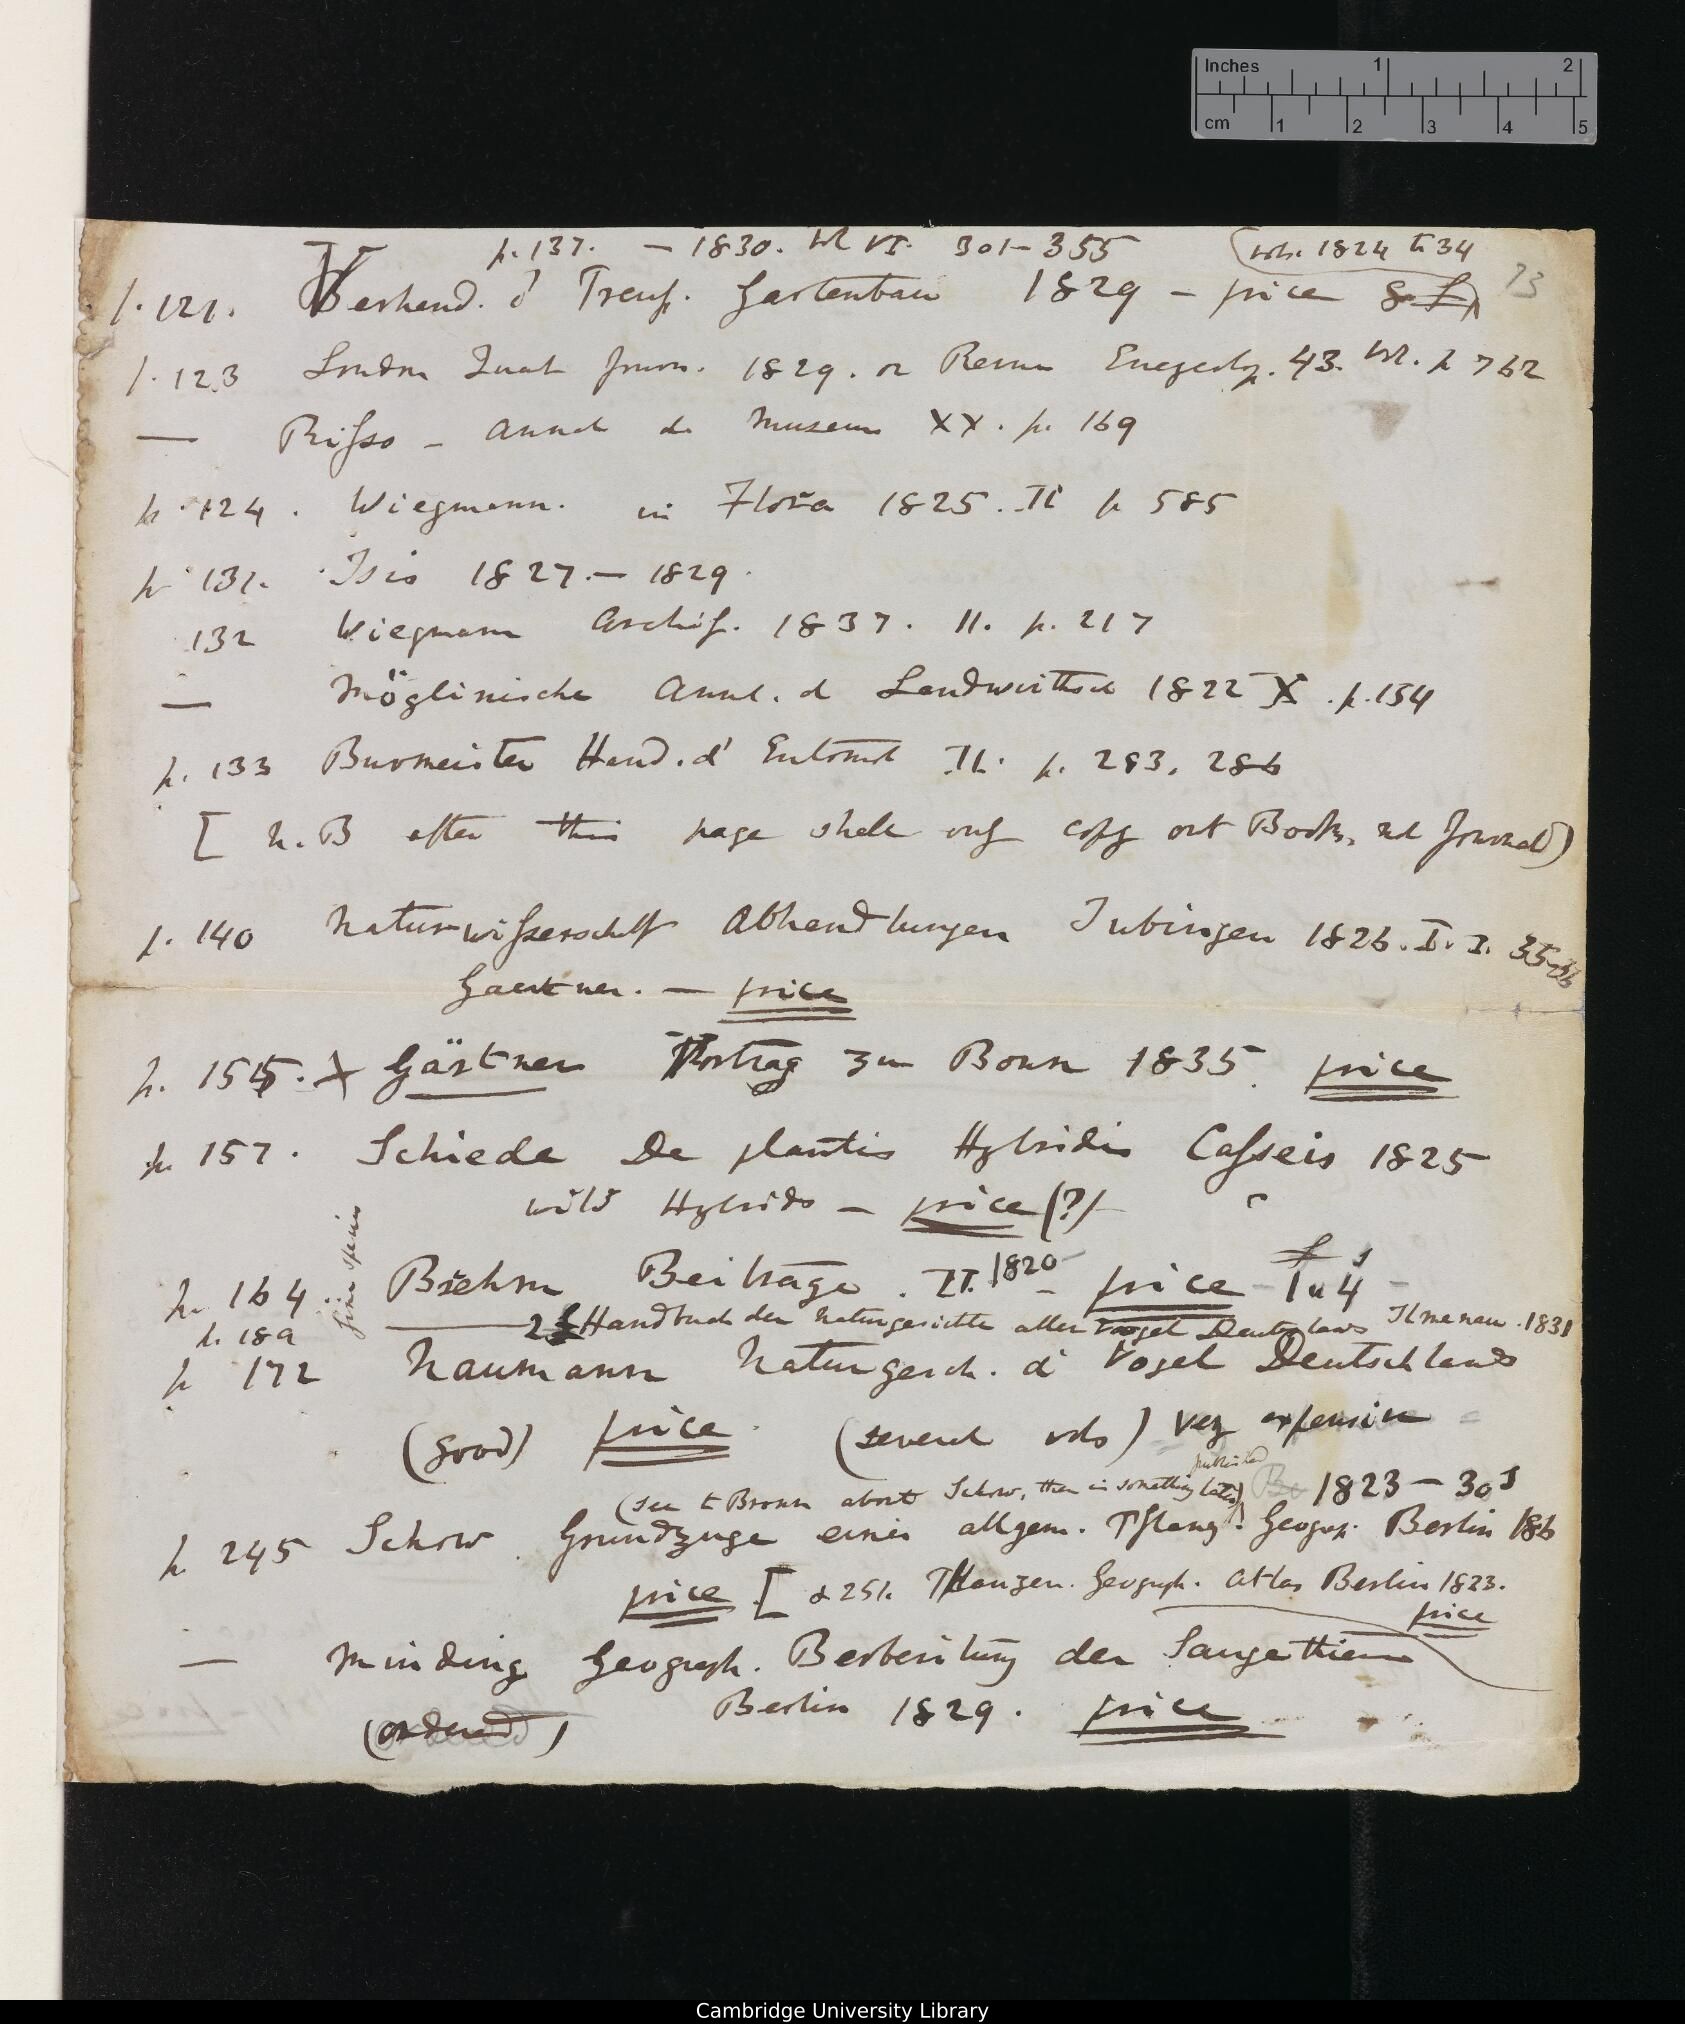 Inches 1 2
cm 1 2 3 4 5
p. 137. — 1830. vol VI. 301–355 (vols. 1824 to 34
73
p. 121. Verhand. d Preuss. Gartenbau 1829 – price 8
p. 123 London Quart Journ. 1829. or Revue Encyclop. 43. vol. p 762
— Risso – Annal de Museum XX. p. 169
p. 124. Wiegmann. in Flora 1825. II p 585
p 131. Isis 1827. — 1829.
132 Wiegmann Archif. 1837. II. p. 217
— Möglinische Annal. d Landwirthsch 1822 X. p. 154
p. 133 Burmeister Hand. d' Entomol II. p. 283, 286
[ N.B after this page shall only copy out Books, not Journal)
p. 140 Naturwissenschaft Abhandlungen Tubingen 1826. I. I. 35
Gaertner. — price
p. 155. X Gärtner Vortrag zu Bonn 1835. price
p. 157. Schiede De plantis Hybridis Casseis 1825
wild Hybrids — price (?)
p. 164. Brehm Beitrage. II. 1820 – price £1 " 4s
fine species
p. 189 — 2 Handbuch der Naturgesichte aller Vogel Deutschlands Ilmenau. 1831
p 172 Naumann Naturgesch. d' Vogel Deutschlands
(good) price (several vols) very expensive
published
(see to Brown about Schow, then in something later) 1823 – 30s
p. 245 Schow Grundzuge einer allgem. Pflanz. Geograp. Berlin
price [ & 251. Pflanzen. Geograph. Atlas Berlin 1823.
price
— Minding Geograph. Verbreitung der Saugethiere
Berlin 1829. price
(ordered)
Cambridge University Library